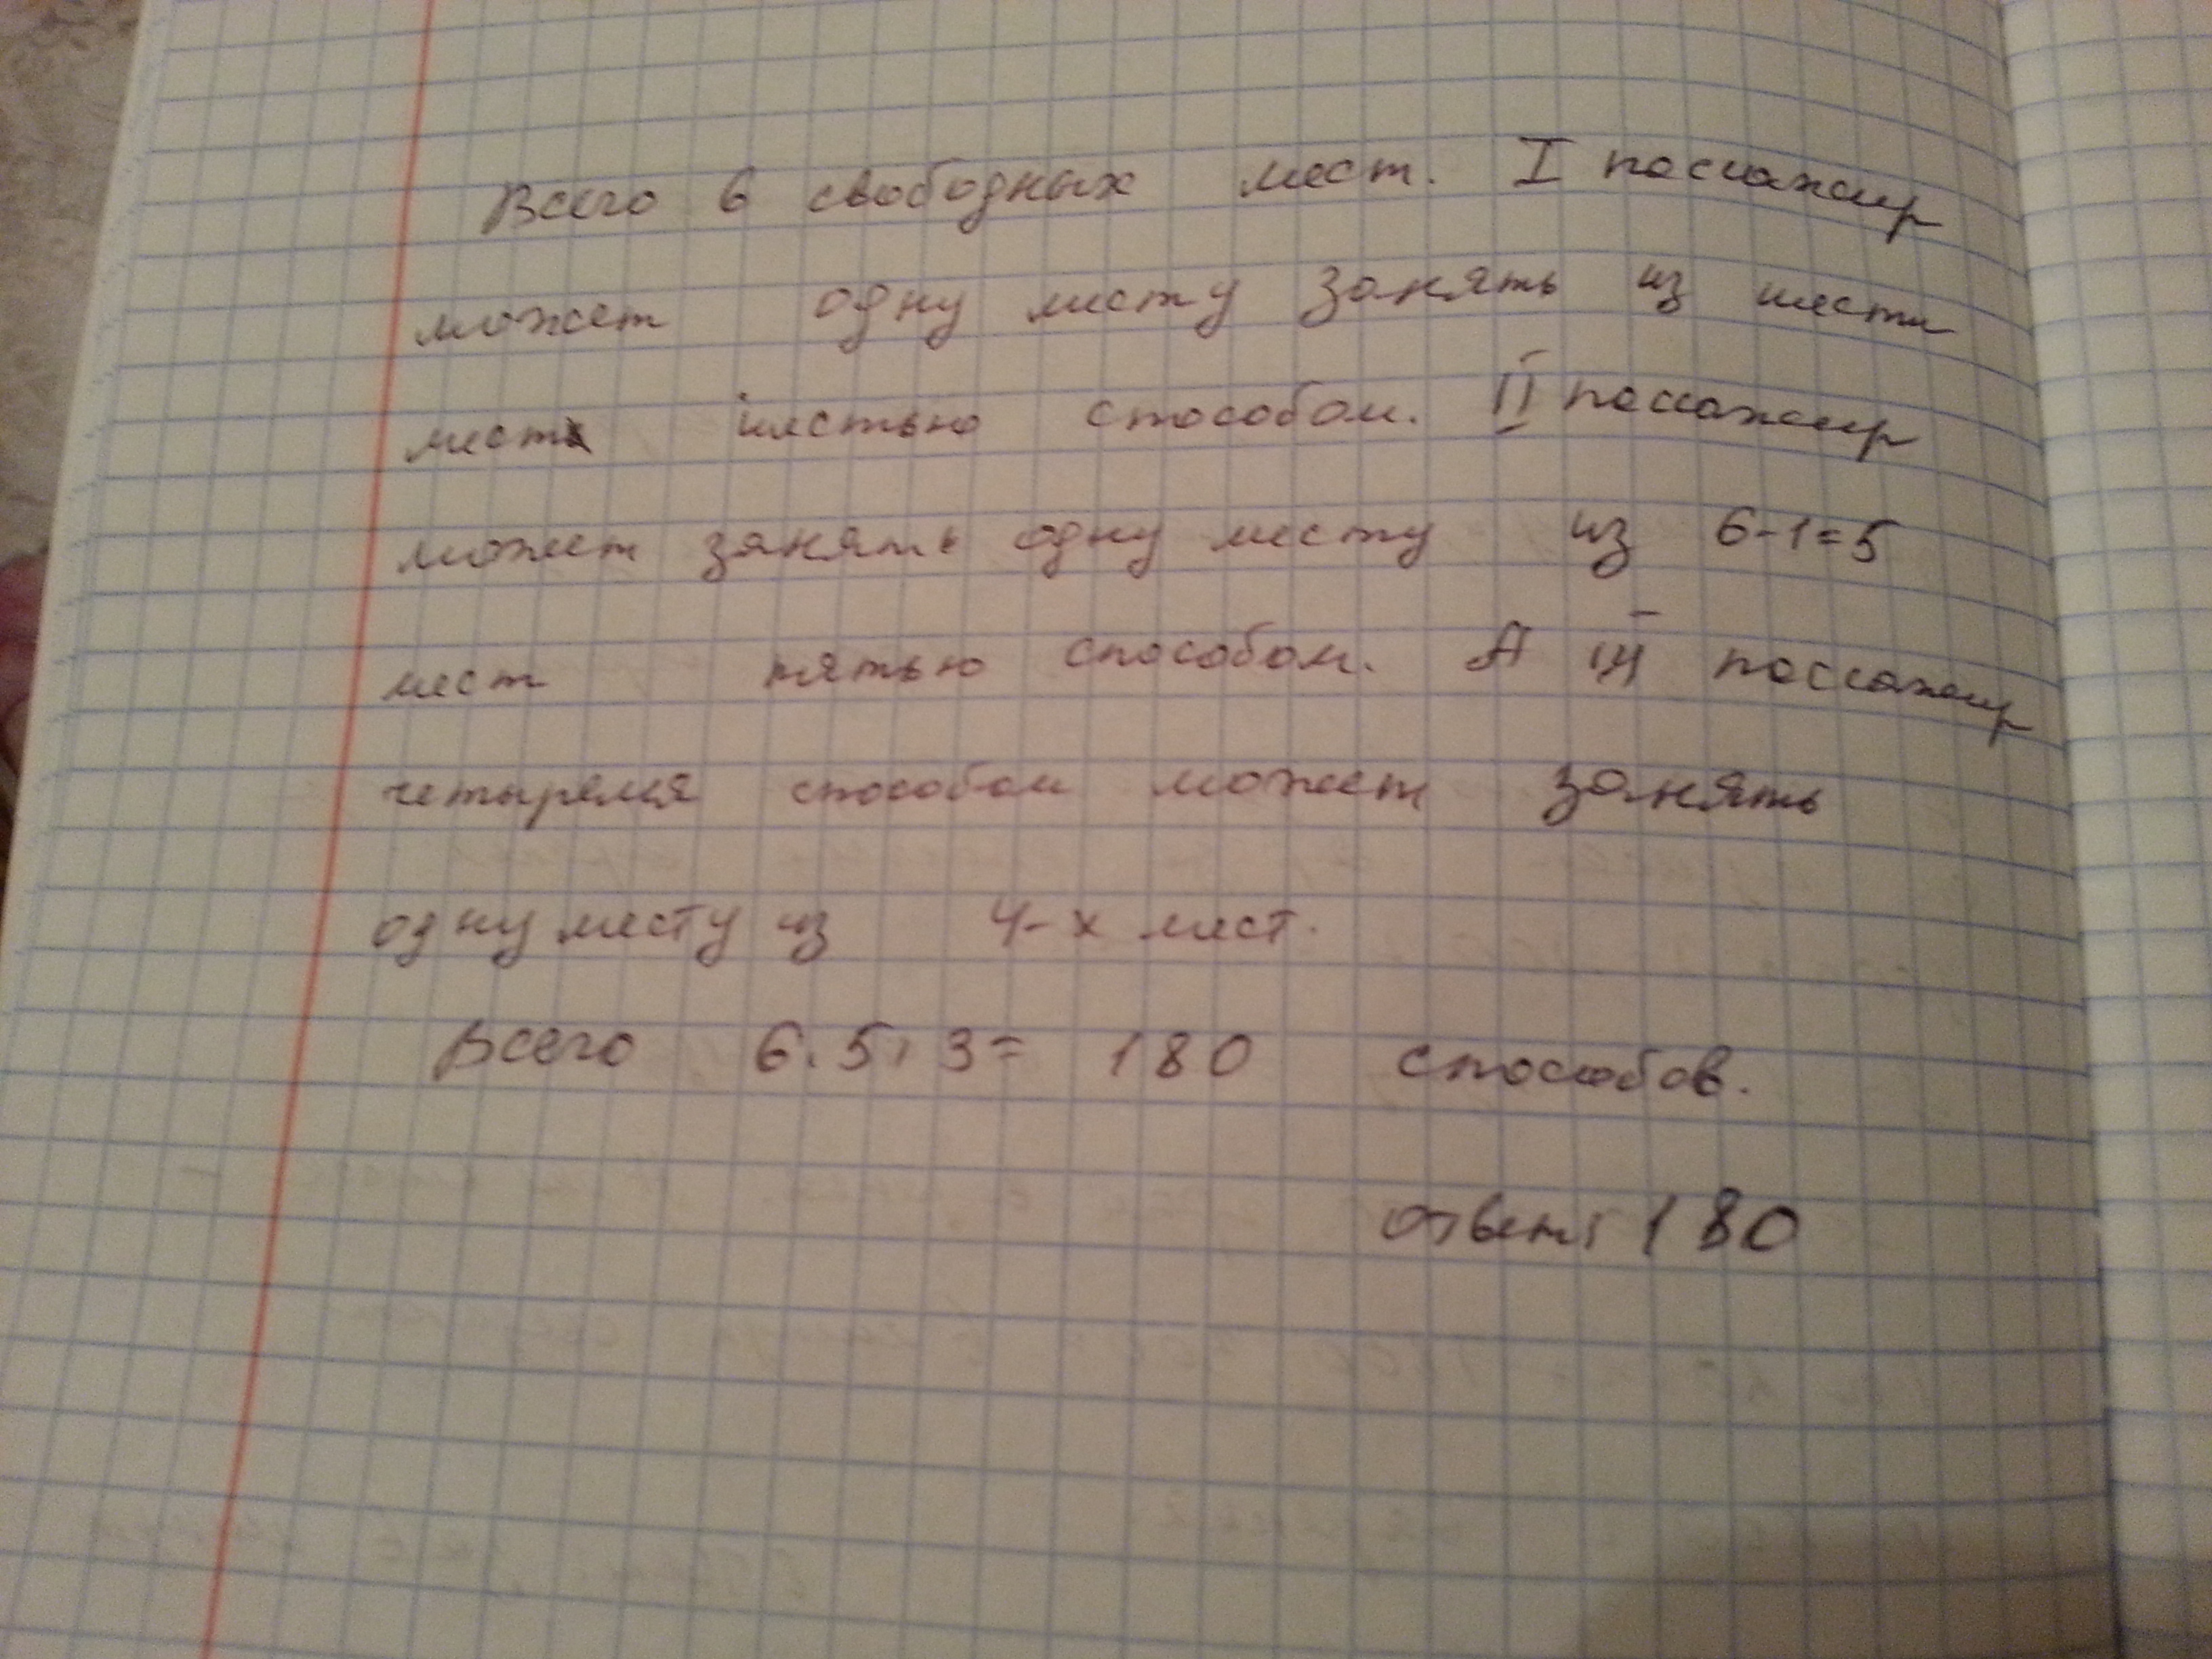 Всего 6 свободных мест. I пассажир
может одну месту занять из шести
мест шестью способом. II пассажир
может занять одну месту из 6-1=5
мест пятью способом. А III пассажир
четыремя способом может занять
одну месту из 4-х мест.
Всего 6.5.3= 180 способов.
ответ: 180